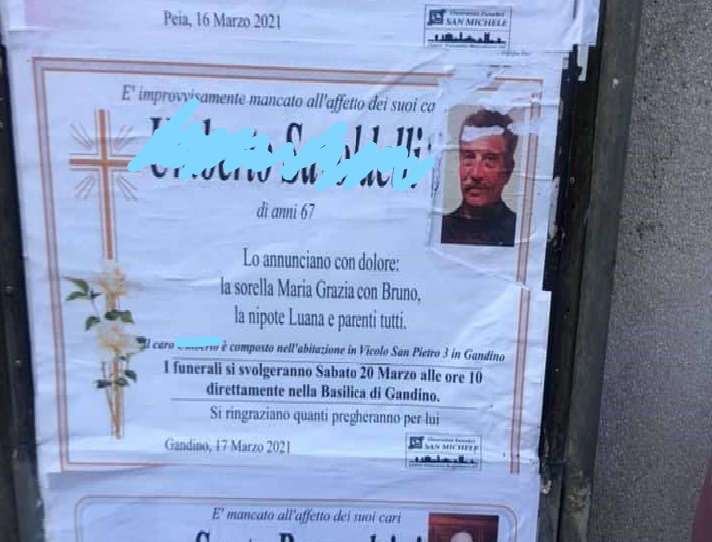 Peia, 16 Marzo 2021
SAN MICHELE
E' improvvisamente mancato all'affetto dei suoi ca
di anni 67
Lo annunciano con dolore:
la sorella Maria Grazia con Bruno,
la nipote Luana e parenti tutti.
Il caro è composto nell'abitazione in Vicolo San Pietro 3 in Gandino
I funerali si svolgeranno Sabato 20 Marzo alle ore 10
direttamente nella Basilica di Gandino.
Si ringraziano quanti pregheranno per lui
Gandino, 17 Marzo 2021
SAN MICHELE
E' mancato all'affetto dei suoi cari